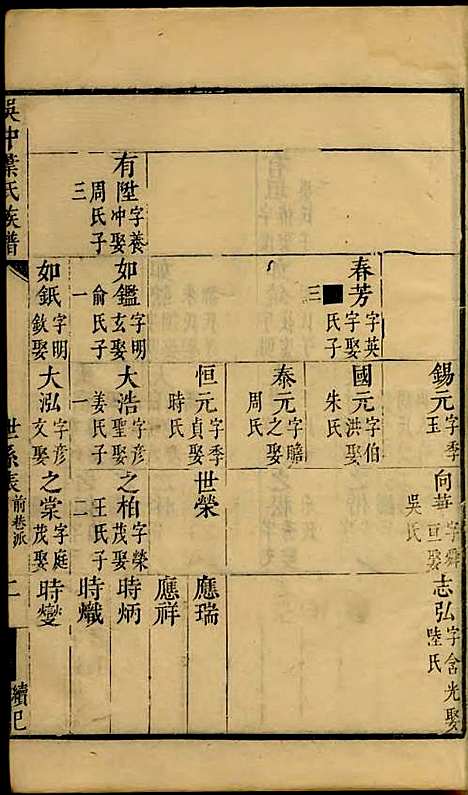 錫元 字季玉
向華 字舜亘娶吳氏
志弘 字含光娶陸氏
春芳 字英 字娶■氏子三
國元 字伯洪娶朱氏
泰元 字瞻之娶周氏
恒元 字季貞娶時氏
世榮
應瑞
應祥
有陞 字養冲娶周氏子三
如鑑 字明玄娶俞氏子一
大浩 字彦聖娶姜氏子一
之柏 字榮茂娶王氏子二
時炳
時熾
如鈺 字明欽娶
大泓 字彦文娶
之棠 字庭茂娶
時燮
吳中葉氏族譜
世系表 前巷派
二
續巳